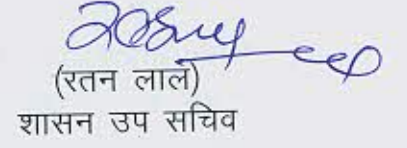 (रतन लाल)
शासन उप सचिव